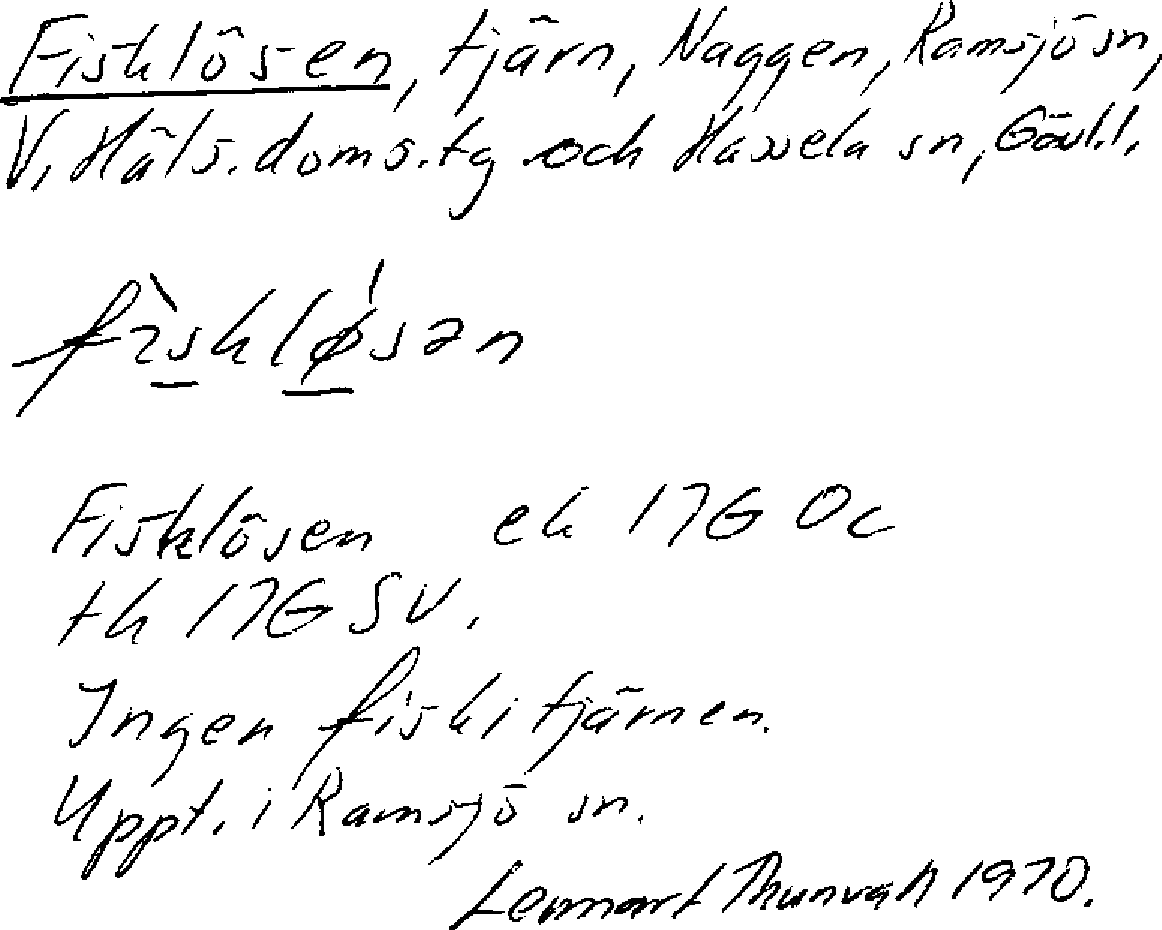 Fisklösen, tjärn, Naggen, Ramsjö sn,
V. Häls. doms.tg och Hassela sn, Gävl.l.
fı̀sklǿsən
Fisklösen ek 17G 0c
tk 17G SV.
Ingen fisk i tjärnen.
Uppt. i Ramsjö sn.
Lennart Thunvall 1970.